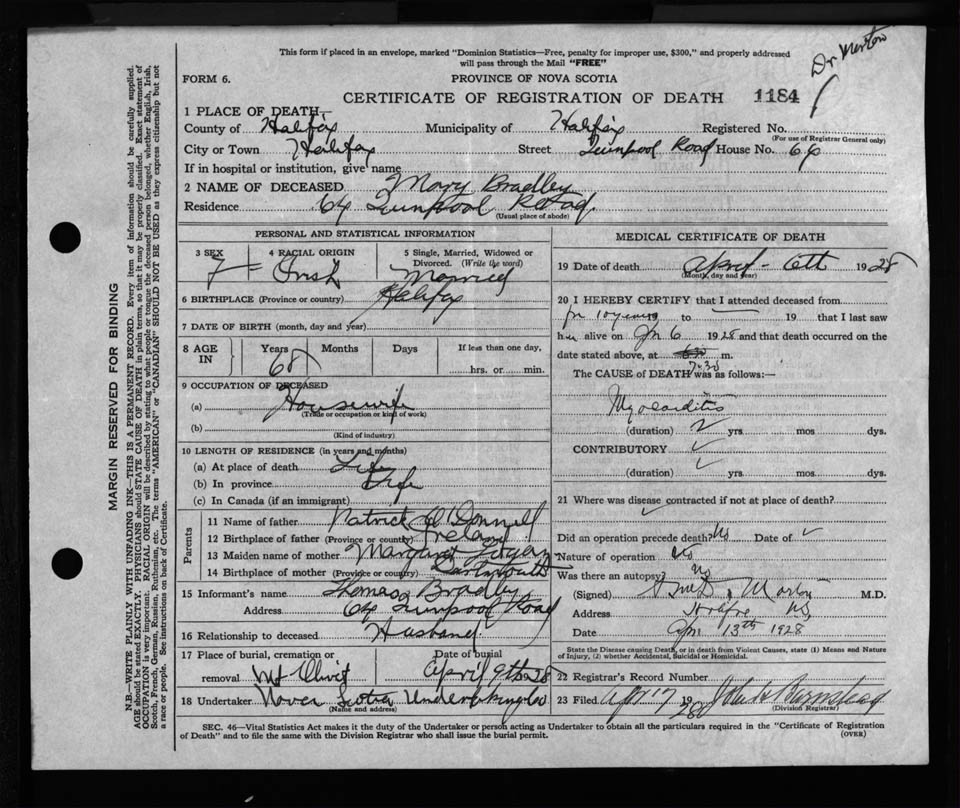 This form if placed in an envelope, marked "Dominion Statistics—Free, penalty for improper use, $300," and properly addressed
will pass through the Mail "FREE"
Dr Morton
FORM 6.
PROVINCE OF NOVA SCOTIA
CERTIFICATE OF REGISTRATION OF DEATH 1184
1 PLACE OF DEATH—
County of Halifax Municipality of Halifax Registered No.
(For use of Registrar General only)
City or Town Halifax Street Quinpool Road House No. 64
If in hospital or institution, give name
2 NAME OF DECEASED Mary Bradley
Residence 64 Quinpool Road
(Usual place of abode)
PERSONAL AND STATISTICAL INFORMATION
3 SEX F
4 RACIAL ORIGIN Irish
5 Single, Married, Widowed or Divorced. (Write the word) Married
6 BIRTHPLACE (Province or country) Halifax
7 DATE OF BIRTH (month, day and year)
8 AGE IN Years Months Days If less than one day,
hrs. or min.
9 OCCUPATION OF DECEASED
(a) Housewife
(Trade or occupation or kind of work)
(b)
(Kind of industry)
10 LENGTH OF RESIDENCE (in years and months)
(a) At place of death Life
(b) In province Life
(c) In Canada (if an immigrant)
Parents
11 Name of father Patrick O'Donnell
12 Birthplace of father (Province or country) Ireland
13 Maiden name of mother Margaret
14 Birthplace of mother (Province or country) Dartmouth
15 Informant's name Thomas Bradley
Address 64 Quinpool Road
16 Relationship to deceased Husband
17 Place of burial, cremation or removal Mt Olivet
Date of burial April 9th 28
18 Undertaker Nova Scotia Undertaking Co
(Name and address)
MEDICAL CERTIFICATE OF DEATH
19 Date of death April 6th 1928
(Month, day and year)
20 I HEREBY CERTIFY that I attended deceased from
for 10 years to 19 that I last saw
h alive on 6 1928 and that death occurred on the
date stated above, at 6.30 m.
7.30
The CAUSE of DEATH was as follows:—
Myocarditis
(duration) 2 yrs. mos dys.
CONTRIBUTORY ✓
(duration) ✓ yrs. mos dys.
21 Where was disease contracted if not at place of death?
✓
Did an operation precede death? No Date of ✓
Nature of operation No
Was there an autopsy? No
(Signed) Morton M.D.
Address Halifax NS
Date Apr 13th 1928
State the Disease causing Death, or in death from Violent Causes, state (1) Means and Nature
of Injury, (2) whether Accidental, Suicidal or Homicidal.
22 Registrar's Record Number
23 Filed Apr 17 1928 John Barnstead
(Division Registrar)
SEC. 46—Vital Statistics Act makes it the duty of the Undertaker or person acting as Undertaker to obtain all the particulars required in the "Certificate of Registration
of Death" and to file the same with the Division Registrar who shall issue the burial permit.
(OVER)
MARGIN RESERVED FOR BINDING
N.B.—WRITE PLAINLY WITH UNFADING INK—THIS IS A PERMANENT RECORD. Every item of information should be carefully supplied.
AGE should be stated EXACTLY. PHYSICIANS should STATE CAUSE OF DEATH in plain terms, so that it may be properly classified. Exact statement of
OCCUPATION is very important. RACIAL ORIGIN will be described by stating to what people or tongue the deceased person belonged, whether English, Irish,
Scotch, French, German, Russian, Ruthenian, etc. The terms "AMERICAN" or "CANADIAN" SHOULD NOT BE USED as they express citizenship but not
a race or people. See instructions on back of Certificate.